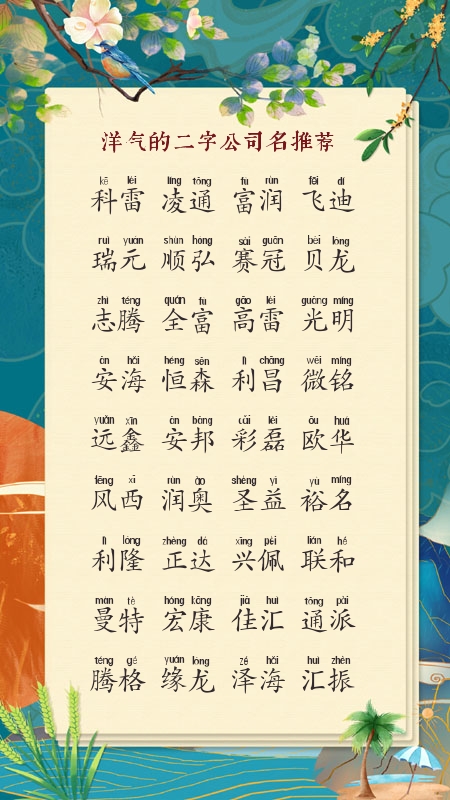 洋气的二字公司名推荐
kē léi líng tōng fù rùn fēi dí
科雷 凌通 富润 飞迪
ruì yuán shùn hóng sài guān bèi lóng
瑞元 顺弘 赛冠 贝龙
zhì téng quán fù gāo léi guāng míng
志腾 全富 高雷 光明
ān hǎi héng sēn lì chāng wēi míng
安海 恒森 利昌 微铭
yuǎn xīn ān bāng cǎi lěi ōu huá
远鑫 安邦 彩磊 欧华
fēng xī rùn ào shèng yì yù míng
风西 润奥 圣益 裕名
lì lóng zhèng dá xīng pèi lián hé
利隆 正达 兴佩 联和
màn tè hóng kāng jiā huì tōng pài
曼特 宏康 佳汇 通派
téng gé yuán lóng zé hǎi huì zhèn
腾格 缘龙 泽海 汇振